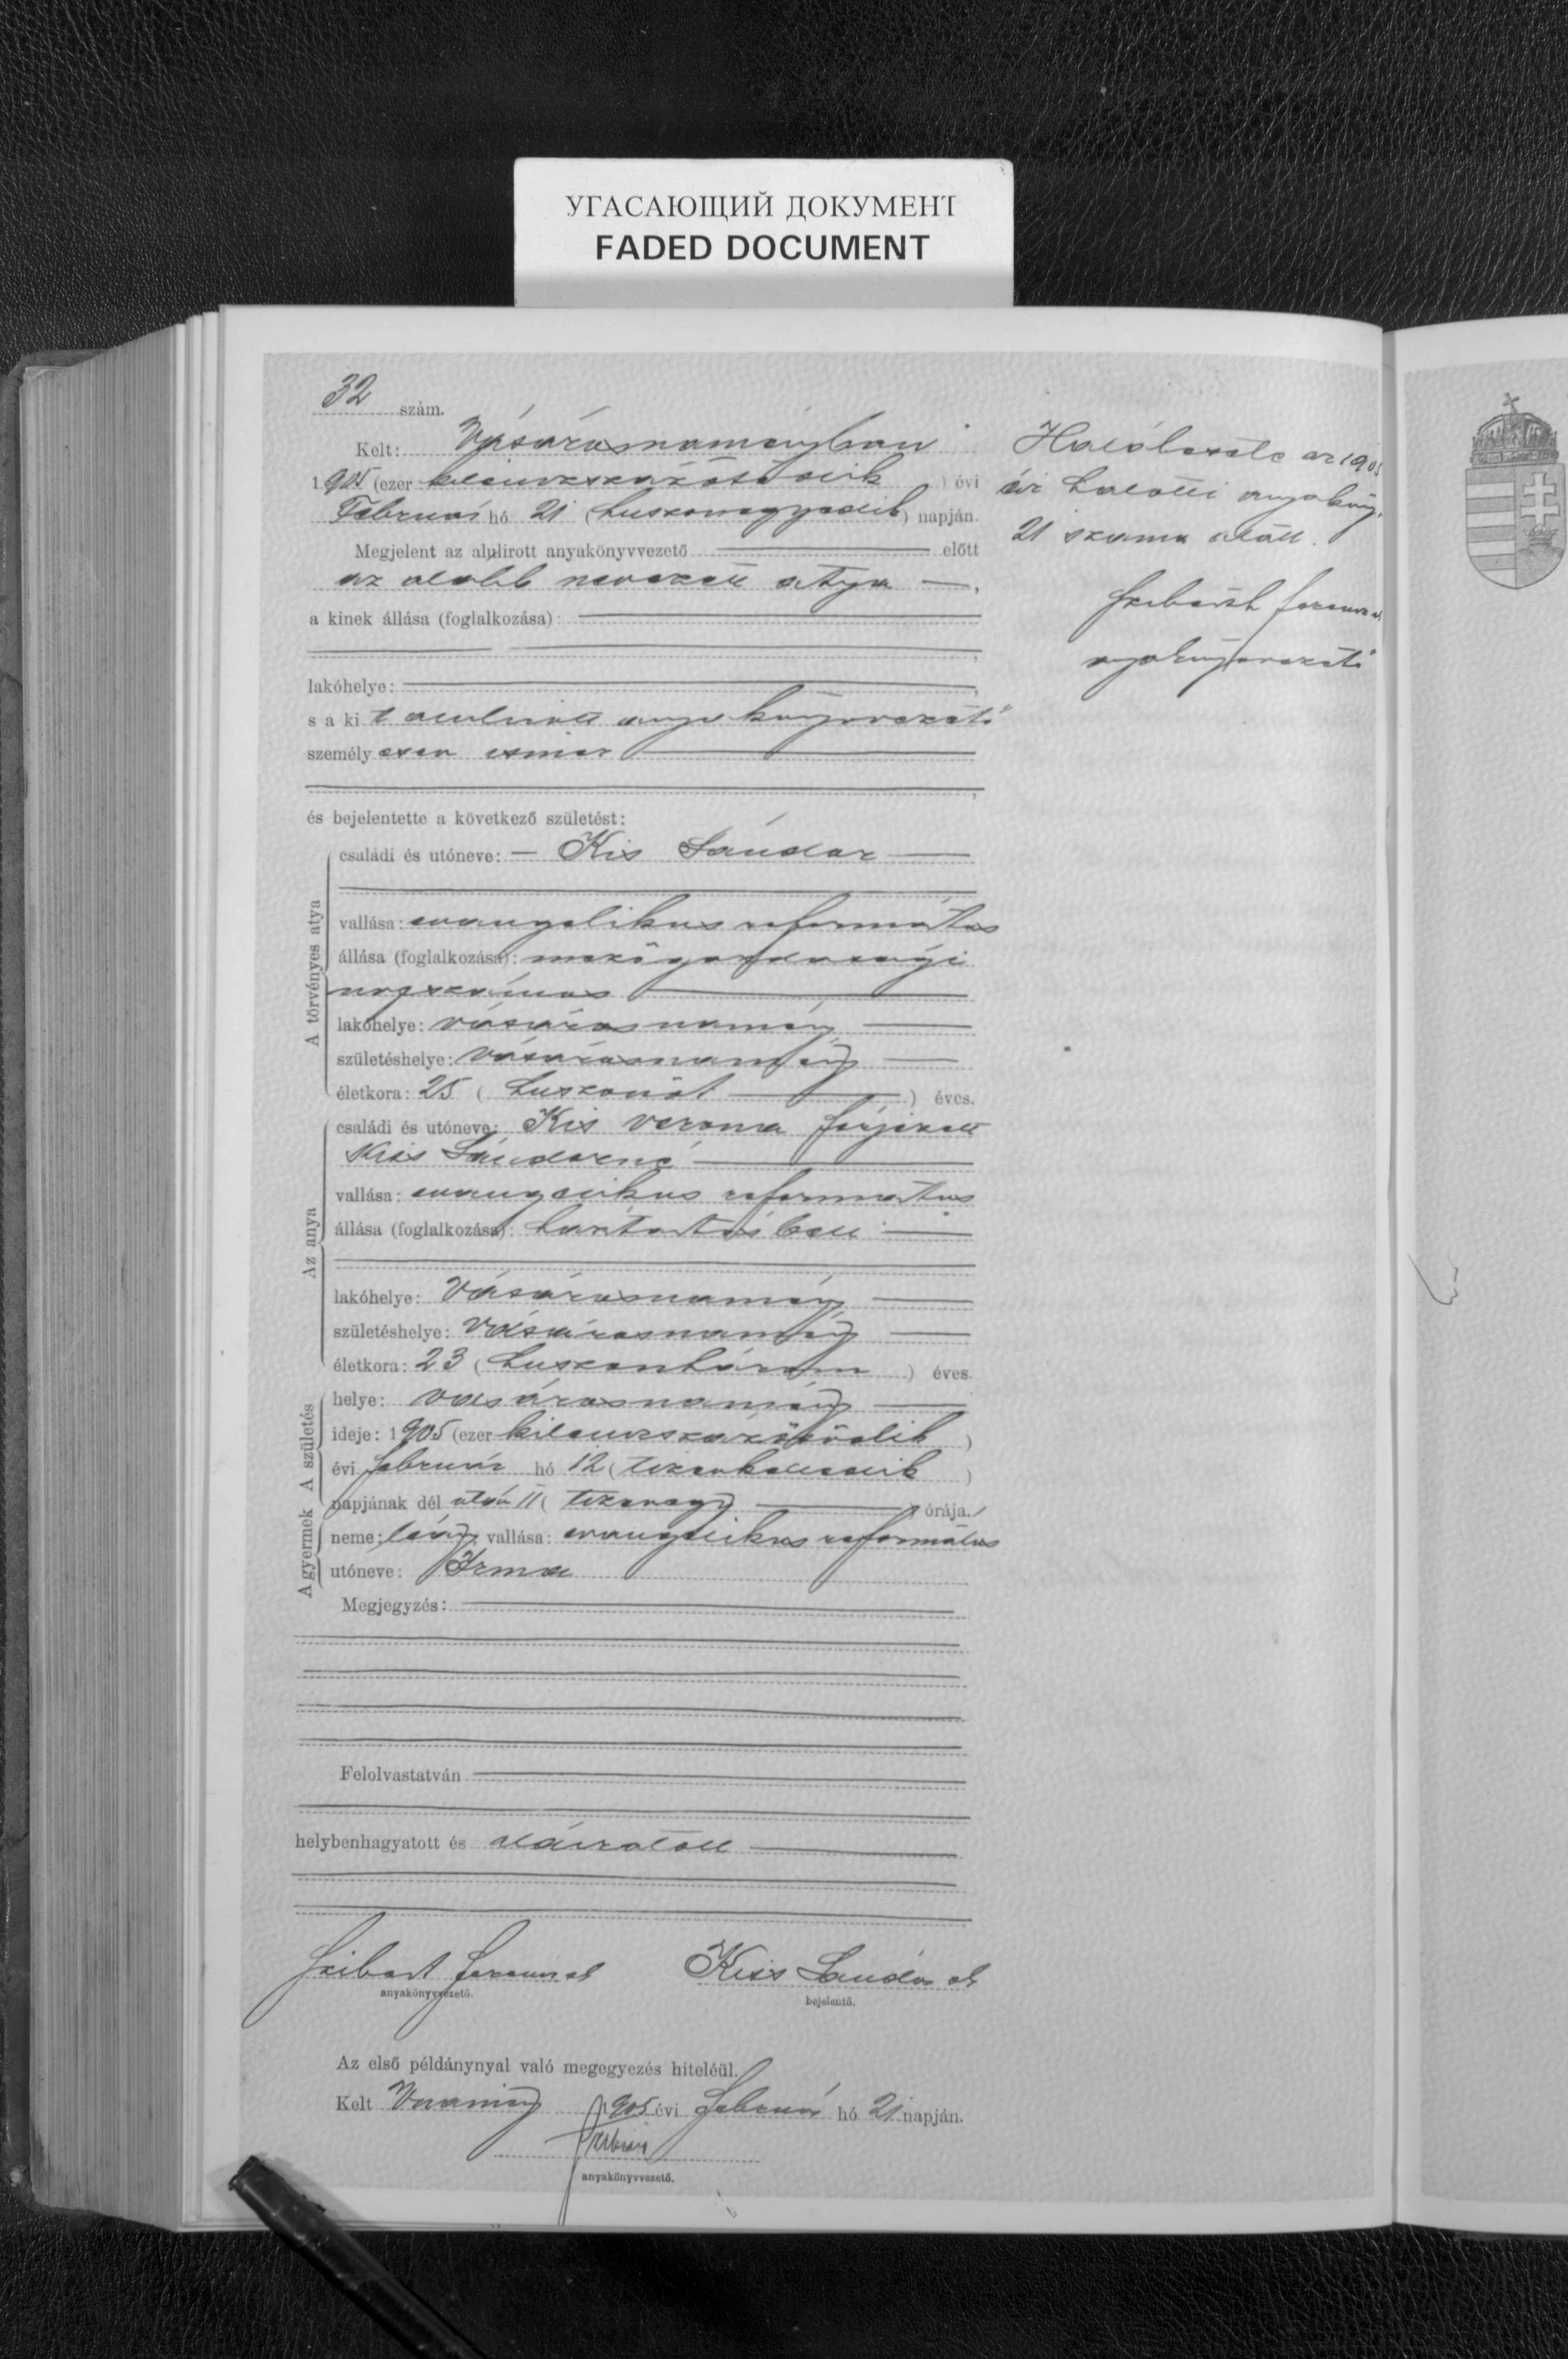 УГАСАЮЩИЙ ДОКУМЕНТ
FADED DOCUMENT
32 szám.
Kelt: Vásárosnaményban
1905 (ezer kilenczszázötödik) évi
Február hó 21 (huszonegyedik) napján.
Megjelent az alulirott anyakönyvvezető előtt
az alább nevezett atya,
a kinek állása (foglalkozása):
lakóhelye:
s a kit alulirott anyakönyvvezető
személyesen ismer
és bejelentette a következő születést:
A törvényes atya
családi és utóneve: Kis Sándor
vallása: evangelikus református
állása (foglalkozása): mezőgazdasági
napszámos
lakóhelye: vásárosnamény
születéshelye: vásárosnamény
életkora: 25 (huszonöt) éves.
Az anya
családi és utóneve: Kis verona férjezett
Kiss Sándorné
vallása: evangelikus református
állása (foglalkozása): háztartásbeli
lakóhelye: Vásárosnamény
születéshelye: Vásárosnamény
életkora: 23 (huszonhárom) éves.
A születés
helye: vásárosnamény
ideje: 1905 (ezer kilenczszázötödik)
évi február hó 12 (tizenkettedik)
napjának dél után 11 (tizenegy) órája.
A gyermek
neme: leány vallása: evangelikus református
utóneve: Irma
Megjegyzés:
Felolvastatván
helybenhagyatott és aláiratott
Ferencz sk Kiss Sándor sk
anyakönyvvezető. bejelentő.
Az első példánynyal való megegyezés hiteléül.
Kelt Vnamény 1905 évi február hó 21 napján.
anyakönyvvezető.
Halálozása az 1905
évi halotti anyakönyv
21 száma alatt.
Ferencz sk
anyakönyvvezető